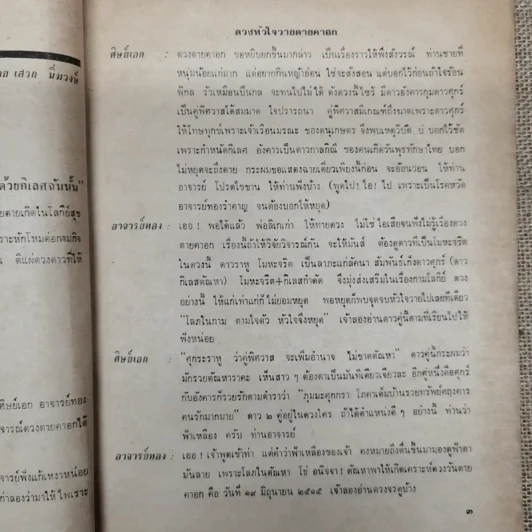 ดวงหัวใจวายตายคาอก
ศิษย์เอก : ดวงตายคาอก ขอหยิบยกขึ้นมากล่าว เป็นเรื่องราวให้พึงสังวรณ์ ท่านชายที่
หนุ่มน้อยแก่มาก แต่อยากกินหญ้าอ่อน ใช่จะสั่งสอน แต่บอกไว้ก่อนถ้าใจร้อน
พิกล วัวเหมือนปืนกล จะทนไปไม่ได้ ดังดวงนี้ไซร้ มีดาวอังคารกุมดาวศุกร์
เป็นคู่พิศวาสได้สมมาด ใจปรารถนา คู่พิศวาสมีเกณฑ์ถึงฆาตเพราะดาวศุกร์
ให้โทษทุกข์เพราะเจ้าเรือนมรณะ ของตนุเกษตร จึงพบเหตุวิบัติ บ่ บอกไว้ชัด
เพราะกำหนัดกิเลศ อังคารเป็นดาวกาลกิณี ของคนเกิดวันพุธทักษาไทย บอก
ไม่หยุดจะถึงตาย กระผมขอแสดงฉายเดี่ยวเพียงนี้ก่อน จะอ้อนวอน ให้ท่าน
อาจารย์ โปรดไขขาน ให้ท่านฟังบ้าง (พูดไป! ไอ! ไป เพราะเป็นโรคหวัด
อาจารย์ทองรำคาญ จนต้องบอกให้หยุด)
อาจารย์ทอง : เออ ! พอได้แล้ว พ่อลิเกเก่า ให้ทายดวง ไม่ใช่ไอเสียจนฟังไม่รู้เรื่องดวง
ตายคาอก เรื่องนี้ถ้าให้วิจัยวิจารณ์กัน จะให้มันส์ ต้องดูดาวที่เป็นโมหะจริต
ในดวงนี้ ดาวราหู โมหะจริต เป็นลาภะแก่ลัคนา สัมพันธ์เก็งดาวศุกร์ (ดาว
กิเลสตัณหา) โมหะจริต+กิเลสกำดัด จึงมุ่งส่งเสริมในเรื่องกามโลกีย์ ดวง
อย่างนี้ ให้แก่เท่าแก่ก็ไม่ยอมหยุด พอหยุดก็พบจุดจบหัวใจวายไปเลยทีเดียว
"โลภในกาม ตามใจตัว หัวใจจึงหยุด" เจ้าลองอ่านดาวคู่นี้ตามที่เรียนไปให้
ฟังหน่อย
ศิษย์เอก : "ศุกระราหู ว่าคู่พิศวาส จะเพิ่มอำนาจ ไม่ขาดตัณหา" ดาวคู่นี้กระผมว่า
มักรวยตัณหาราคะ เห็นสาว ๆ ต้องตาเป็นมันทีเดียวเจียวละ อีกคู่หนึ่งคือศุกร์
กับอังคารก็รวยรักตามตำราว่า "ภุมมะศุกกรา โภคาเต็มบ้านรวยทรัพย์ศฤงคาร
คนรักมากมาย" ดาว ๒ คู่อยู่ในดวงใคร ถ้าได้ตำแหน่งดี ๆ อย่างนี้ ท่านว่า
ฟ้าเหลือง ครับ ท่านอาจารย์
อาจารย์ทอง : เออ ! เจ้าพูดเข้าท่า แต่คำว่าฟ้าเหลืองของเจ้า คงหมายถึงตื่นขึ้นมามองดูฟ้าตา
มันลาย เพราะโลภในตัณหา โข่ อนิจจา! ตัณหาพาให้เกิดเคราะห์ดวงวันตาย
คาอก คือ วันที่ ๑๙ มิถุนายน ๒๕๑๕ เจ้าลองอ่านดวงจรดูบ้าง
๓
ดย เสวก นิ่มวงษ์
ด้วยกิเลศฉันนั้น"
ายตายเกิดในโลกีย์สุข
ดิแผ่ดวงดาวที่ให้
ศิษย์เอก อาจารย์ทอง
จารณ์ดวงตายคาอกได้
จารย์ฟังแก้เหงาหน่อย
าลองว่ามาให้ ไพเราะ